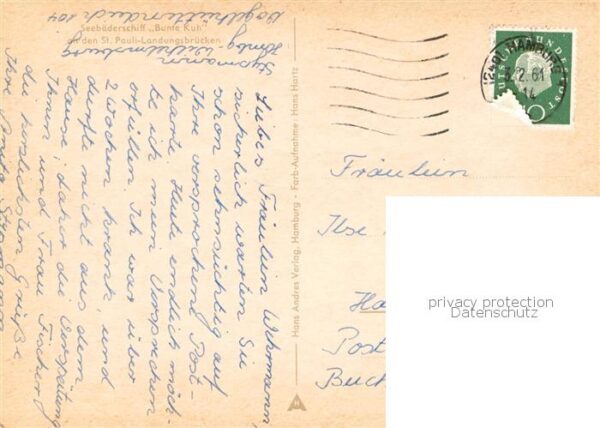 Seebäderschiff „Bunte Kuh“
an den St. Pauli-Landungsbrücken
Hmbg.-Wilhelmsburg
Liebes Fräulein Wehrmann,
sicherlich warten Sie
schon sehnsüchtig auf
Ihre versprochene Post-
karte. Heute endlich möch-
te ich mein Versprechen
erfüllen. Ich war über
2 Wochen krank und
durfte nicht aus dem
Hause, daher die Verspätung.
Ihnen und Frau Fischer
die herzlichsten Grüße
Ihre
Hans Andres Verlag, Hamburg - Farb-Aufnahme: Hans Hartz
HAMBURG
2.61
14
DEUTSCHE BUNDESPOST
Fräulein
Ilse
Ha
Post
Buch
privacy protection
Datenschutz